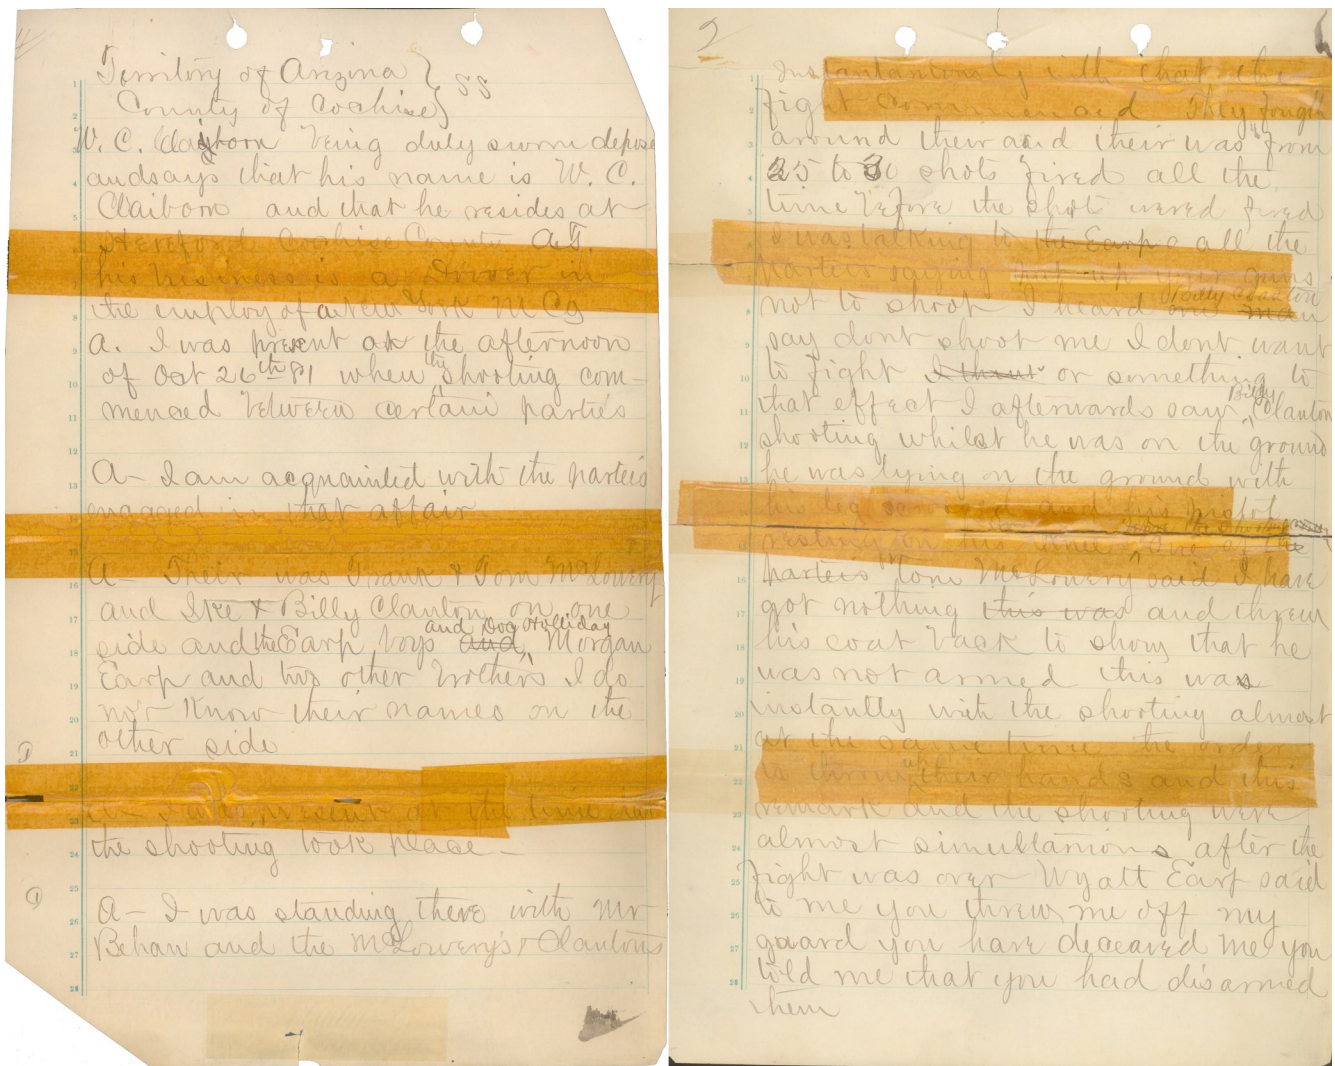 Territory of Arizona } SS
County of Cochise }
W. C. Claiborn being duly sworn depose
and says that his name is W. C.
Claiborn and that he resides at
Hereford Cochise County A.T.
his business is a Driver in
the employ of a New York M Co
A. I was present on the afternoon
of Oct 26th 81 when the shooting com-
menced between certain parties
A- I am acquainted with the parteis
engaged in that affair
A- Their was Frank & Tom McLowery
and Ike & Billy Clanton on one
side and the Earp boys and and Doc Holliday Morgan
Earp and two other brothers I do
not Know their names on the
other side
A- I was present at the time
the shooting took place-
A- I was standing there with Mr
Behan and the McLowery's & Clantons
2
Instantaneously with that the
fight commenced They fough
around their and their was from
25 to 30 shots fired all the
time before the shots wered fired
I was talking to the Earps all the
parteis saying put up your guns
not to shoot I heard one man Billy Clanton
say dont shoot me I dont want
to fight or something to
that effect I afterwards saw Billy Clanton
shooting whilst he was on the ground
he was lying on the ground with
his leg and his pistol
resting on his knee One of the
parteis Tom McLowery said I have
got nothing this was and threw
his coat back to show that he
was not armed this was
instantly with the shooting almost
at the same time the order
to throw up their hands and this
remark and the shooting were
almost simultanions after the
fight was over Wyatt Earp said
to me you threw me off my
guard you have deceaved me you
told me that you had disarmed
them